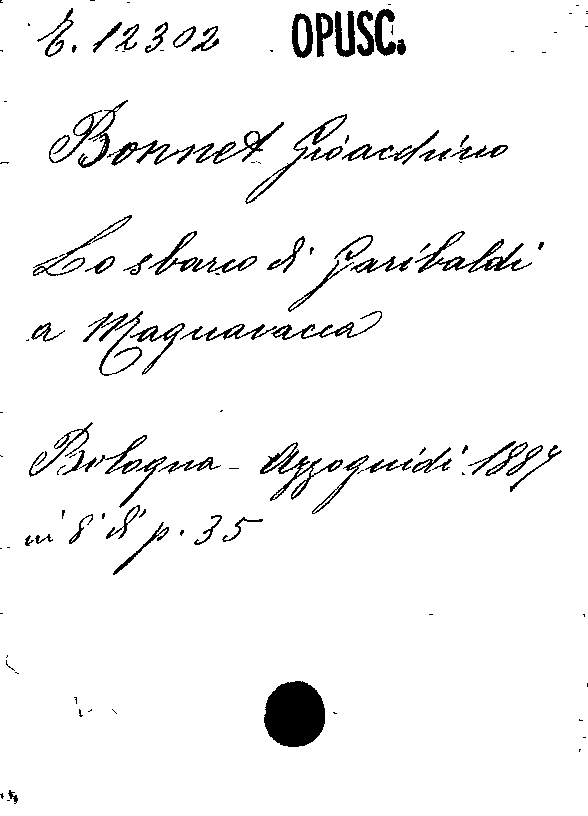 E. 12302 OPUSC.
Bonnet Gioacchino
Lo sbarco di Garibaldi
a Magnavacca
Bologna - Azzoguidi 1887
in 8° di p. 35